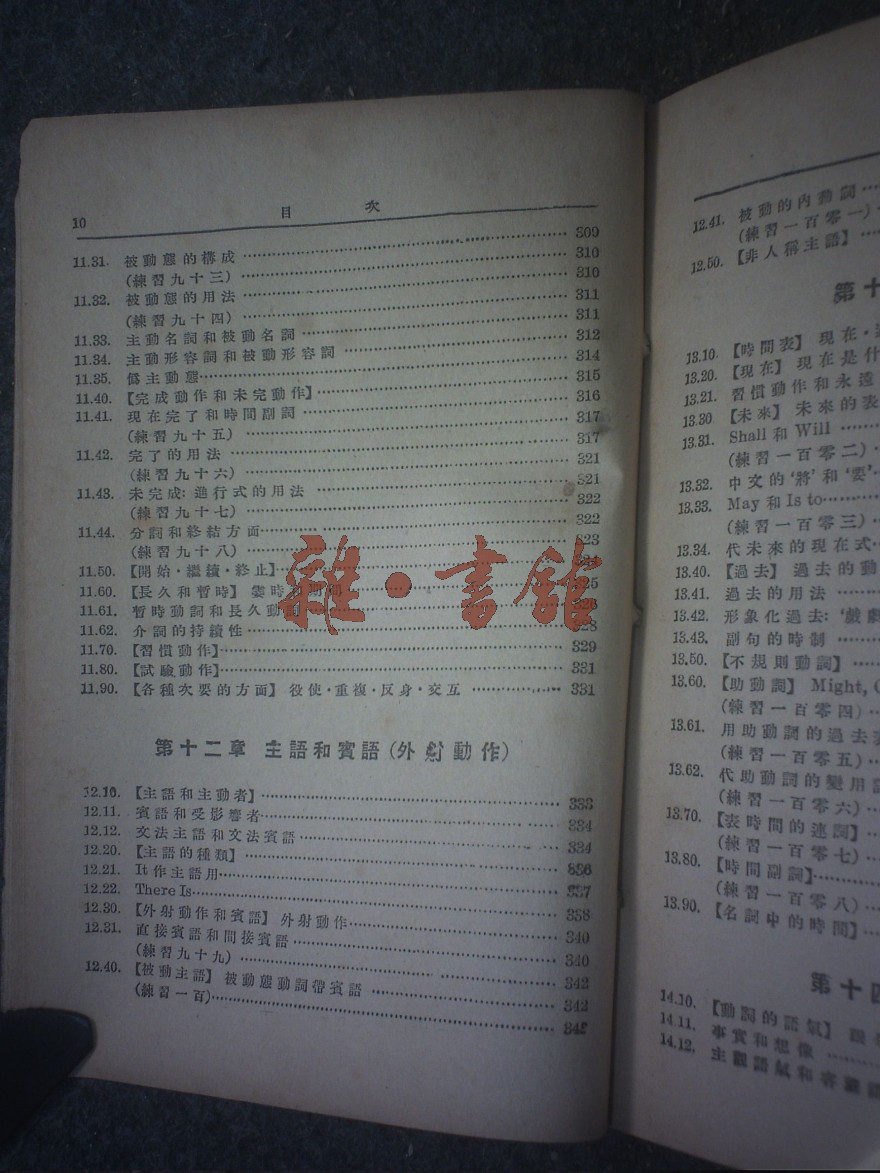 10 目次
11.31. 被動態的構成 309
(練習九十三) 310
11.32. 被動態的用法 310
(練習九十四) 311
11.33. 主動名詞和被動名詞 311
11.34. 主動形容詞和被動形容詞 312
11.35. 僞主動態 314
11.40. 【完成動作和未完動作】 315
11.41. 現在完了和時間副詞 316
(練習九十五) 317
11.42. 完了的用法 317
(練習九十六) 321
11.43. 未完成:進行式的用法 321
(練習九十七) 322
11.44. 分詞和終結方面 322
(練習九十八) 323
11.50. 【開始·繼續·終止】
11.60. 【長久和暫時】 霎時和期間
11.61. 暫時動詞和長久動詞
11.62. 介詞的持續性 328
11.70. 【習慣動作】 329
11.80. 【試驗動作】 331
11.90. 【各種次要的方面】 役使·重複·反身·交互 331
第十二章 主語和賓語(外射動作)
12.10. 【主語和主動者】 333
12.11. 賓語和受影響者 334
12.12. 文法主語和文法賓語 334
12.20. 【主語的種類】
12.21. It作主語用 336
12.22. There Is 337
12.30. 【外射動作和賓語】 外射動作 338
12.31. 直接賓語和間接賓語 340
(練習九十九) 340
12.40. 【被動主語】 被動態動詞帶賓語 342
(練習一百) 342
雜·書館
12.41. 被動的內動詞
(練習一百零一)
12.50. 【非人稱主語】
第十
13.10. 【時間表】 現在·
13.20. 【現在】 現在是什
13.21. 習慣動作和永遠
13.30 【未來】 未來的表
13.31. Shall 和 Will
(練習一百零二)
13.32. 中文的‘將’和‘要’
13.33. May 和 Is to
(練習一百零三)
13.34. 代未來的現在式
13.40. 【過去】 過去的動
13.41. 過去的用法
13.42. 形象化過去: ‘戲劇
13.43. 副句的時制
13.50. 【不規則動詞】
13.60. 【助動詞】 Might,
(練習一百零四)
13.61. 用助動詞的過去表
(練習一百零五)
13.62. 代助動詞的變用
(練習一百零六)
13.70. 【表時間的連詞】
(練習一百零七)
13.80. 【時間副詞】
(練習一百零八)
13.90. 【名詞中的時間】
第十四
14.10. 【動詞的語氣】
14.11. 事實和想像
14.12. 主觀語氣和客觀語